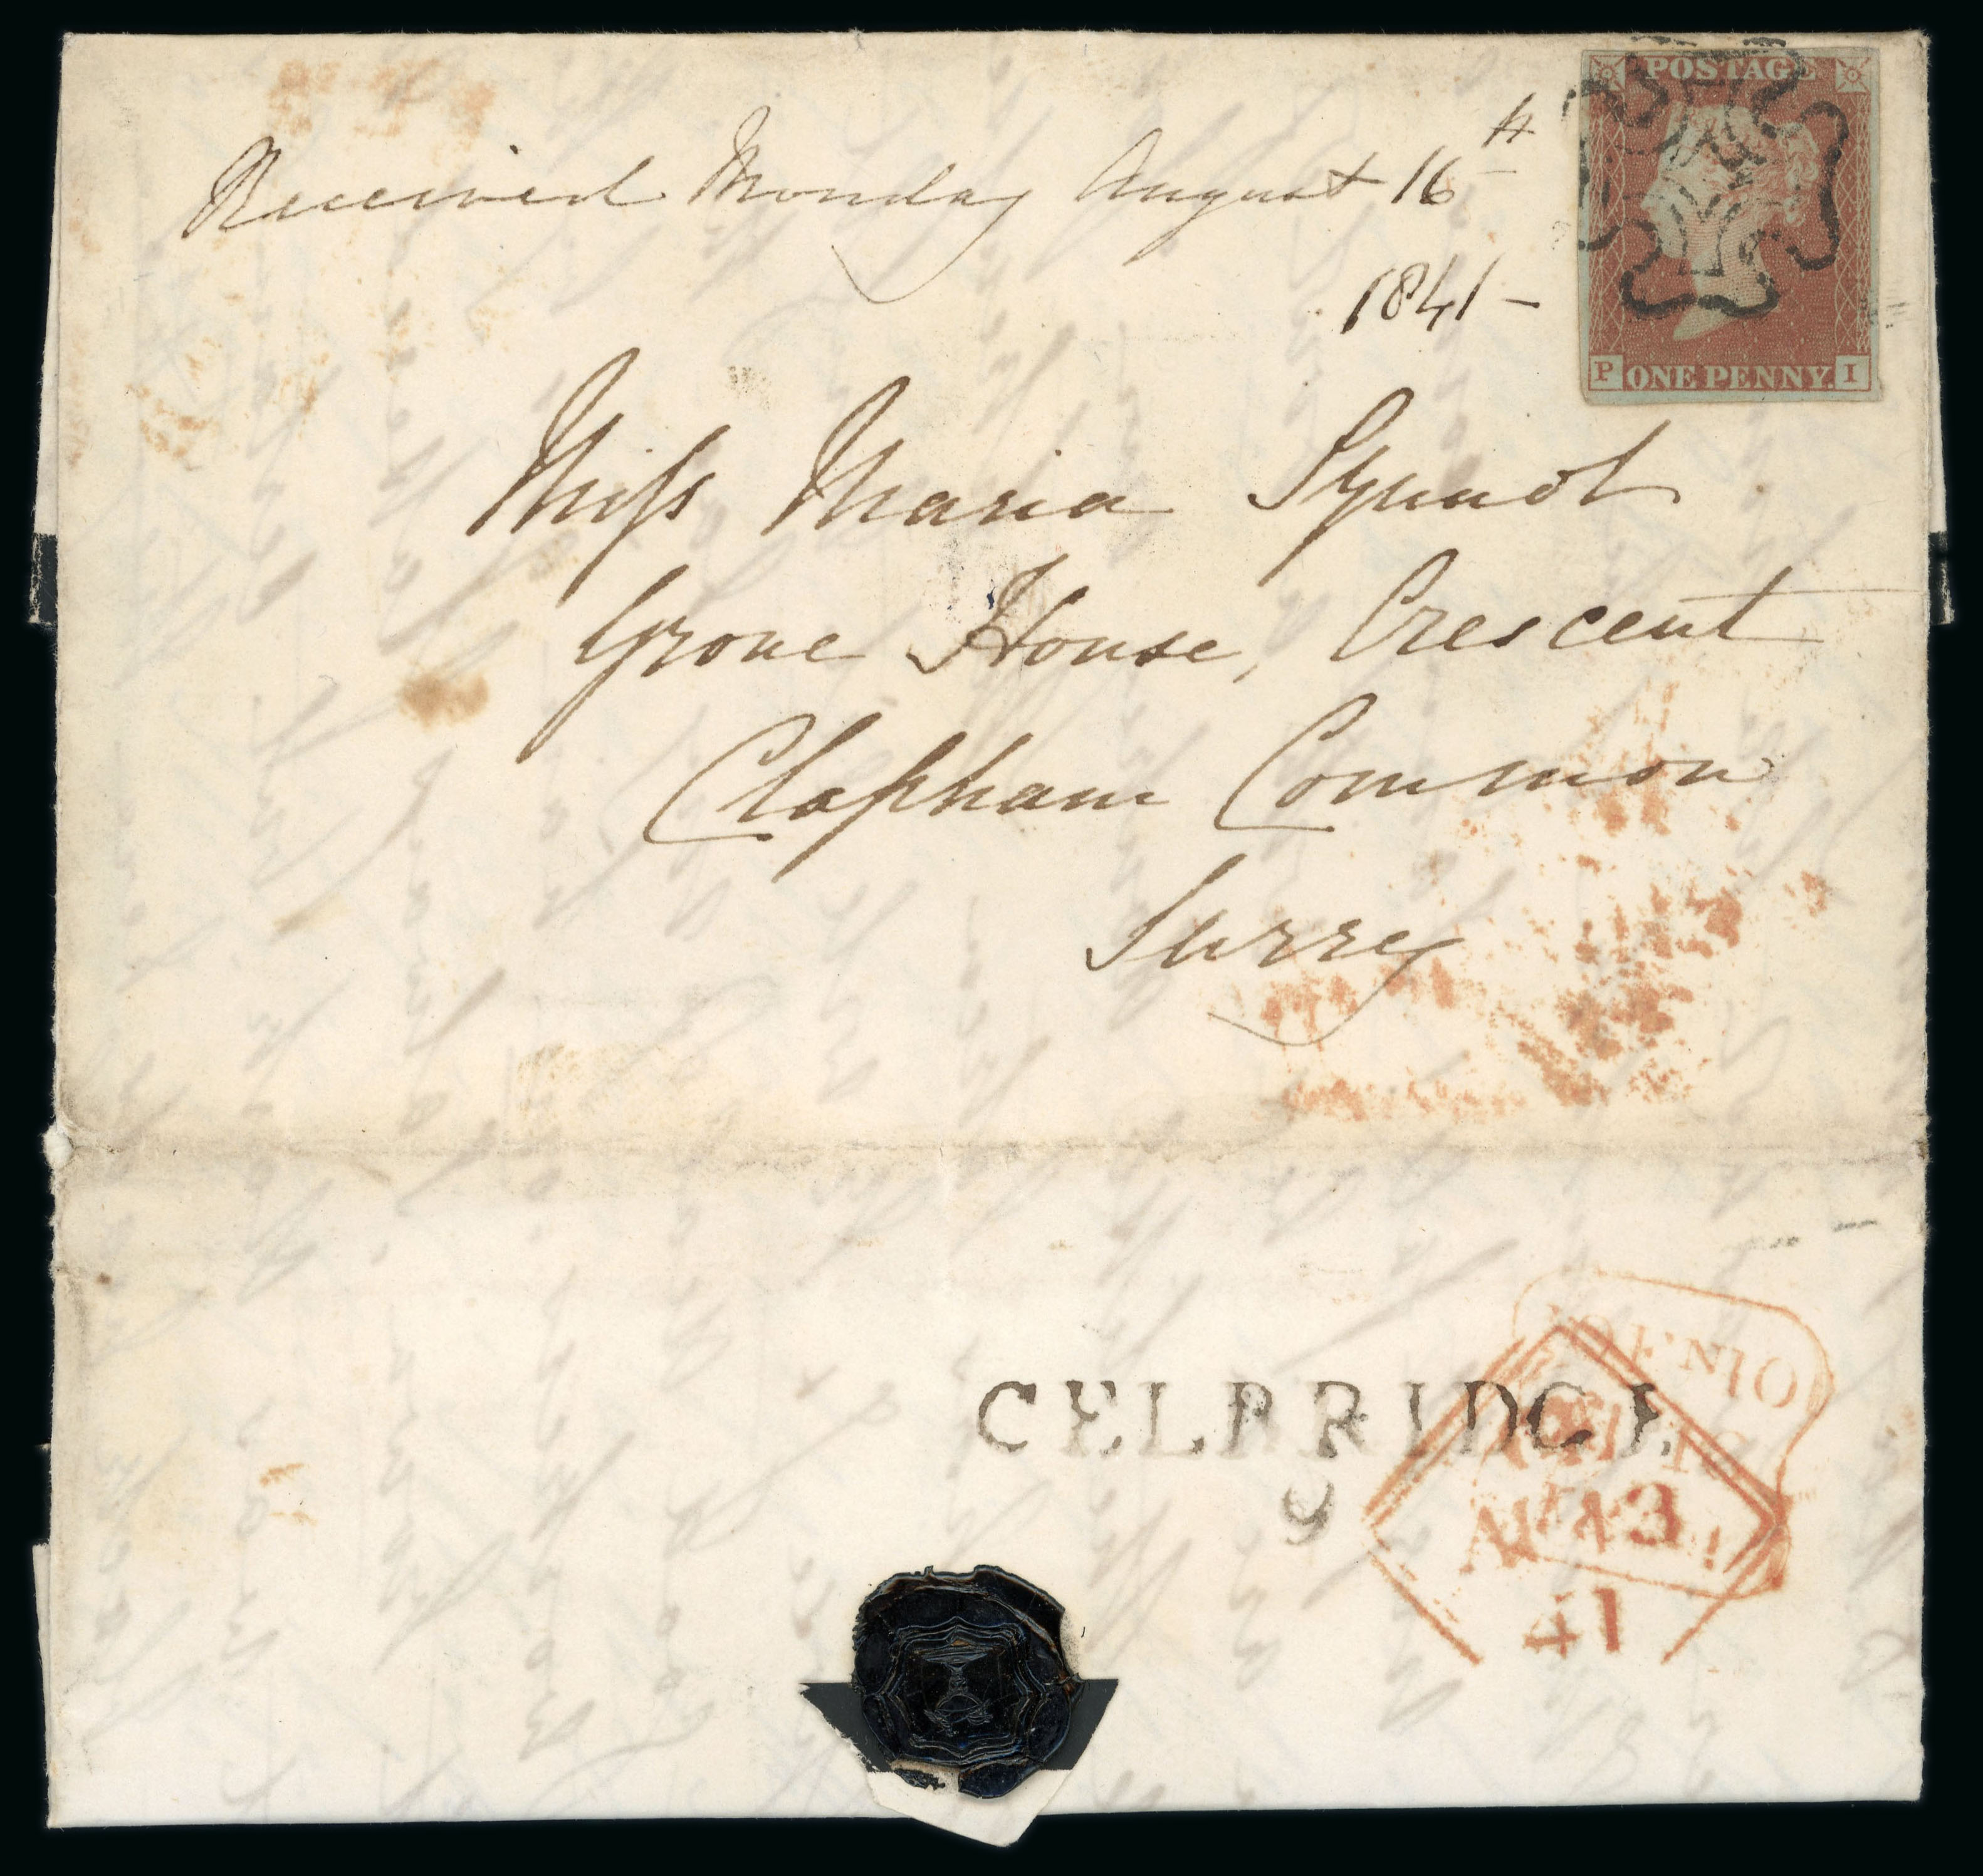 POSTAGE
Received Monday August 16th
1841 -
P ONE PENNY I
Miss Maria Synnot
Grove House, Crescent
Clapham Common
Surrey
CELBRIDGE
9
AU 13
41